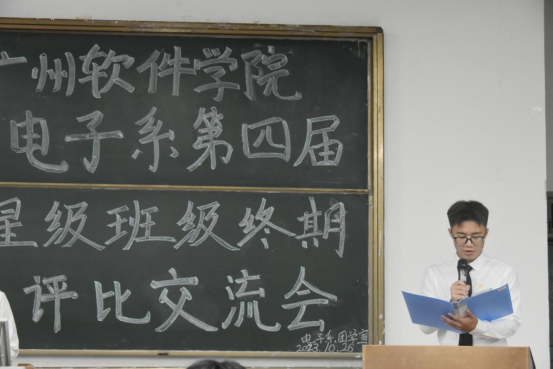 广州软件学院
电子系第四届
星级班级终期
评比交流会
电子系团学宣
2023.10.26